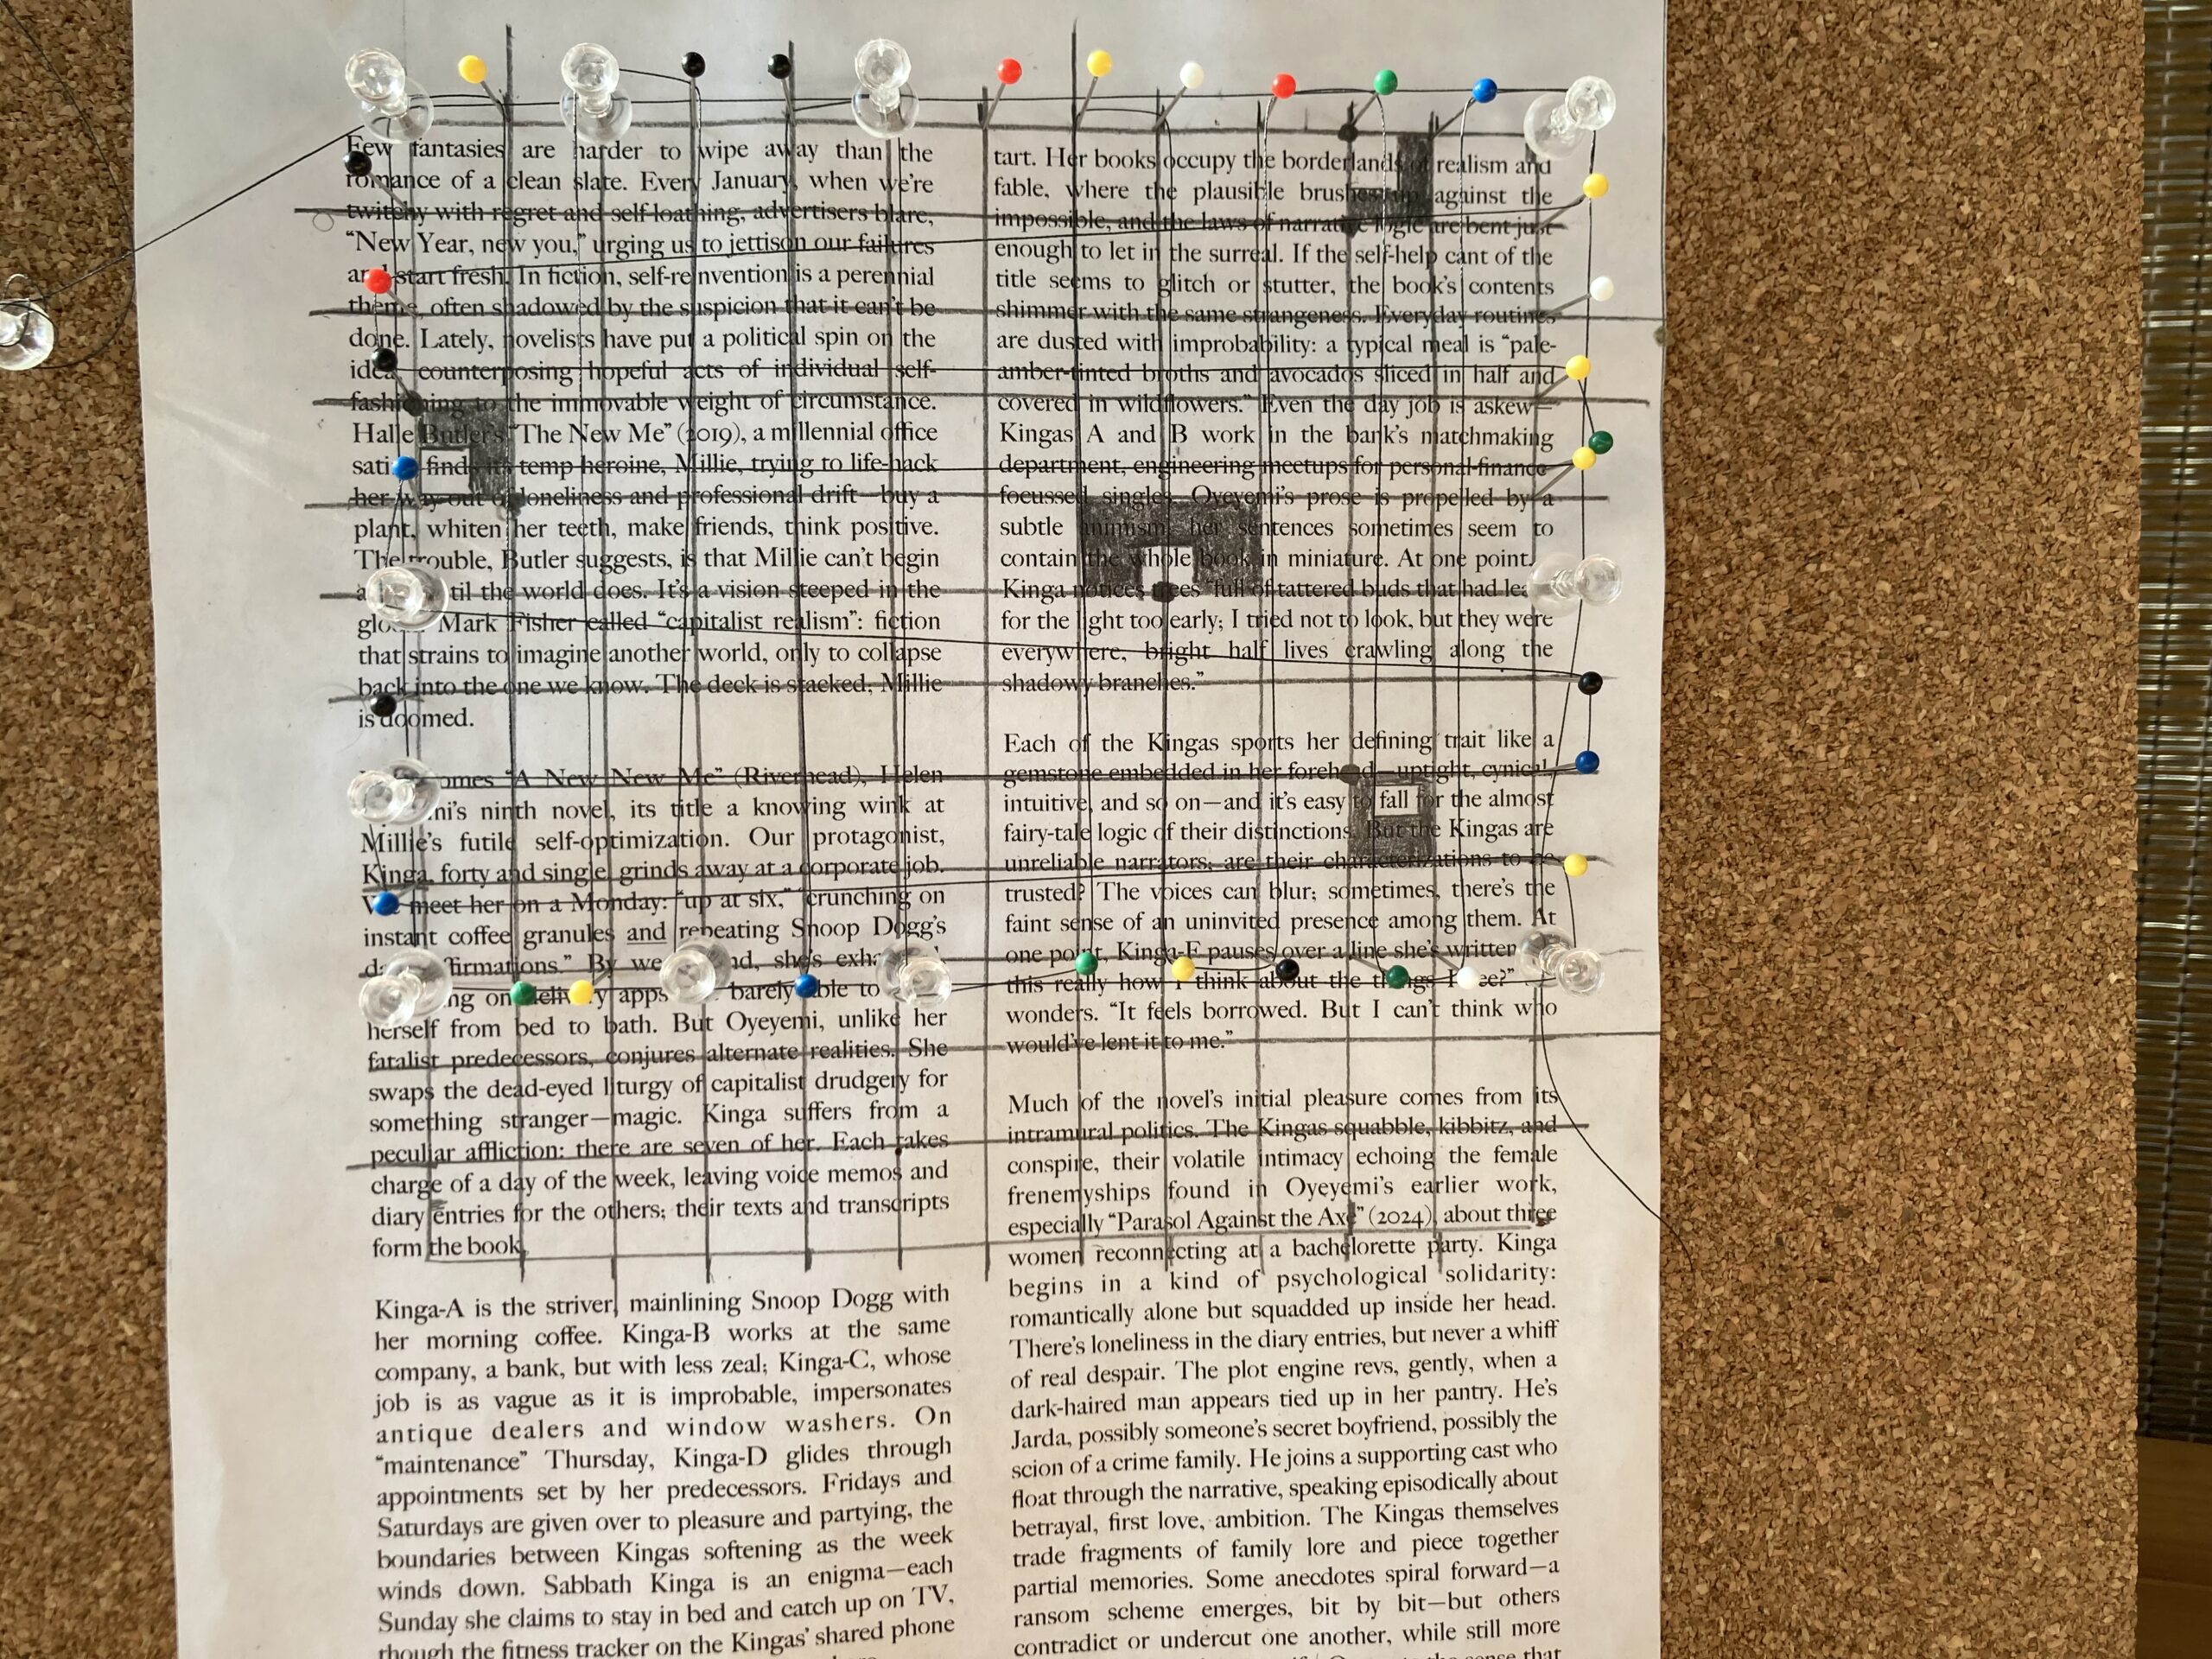 Few fantasies are harder to wipe away than the
romance of a clean slate. Every January, when we're
twitchy with regret and self-loathing, advertisers blare,
“New Year, new you,” urging us to jettison our failures
and start fresh. In fiction, self-reinvention is a perennial
theme, often shadowed by the suspicion that it can't be
done. Lately, novelists have put a political spin on the
idea, counterposing hopeful acts of individual self-
fashioning to the immovable weight of circumstance.
Halle Butler's “The New Me” (2019), a millennial office
finds its temp heroine, Millie, trying to life-hack
her way out of loneliness and professional drift—buy a
plant, whiten her teeth, make friends, think positive.
The trouble, Butler suggests, is that Millie can't begin
til the world does. It's a vision steeped in the
Mark Fisher called “capitalist realism”: fiction
that strains to imagine another world, only to collapse
back into the one we know. The deck is stacked; Millie
is doomed.
“A New New Me” (Riverhead), Helen
ninth novel, its title a knowing wink at
Millie's futile self-optimization. Our protagonist,
Kinga, forty and single, grinds away at a corporate job.
We meet her on a Monday: “up at six,” “crunching on
instant coffee granules and repeating Snoop Dogg's
By she's
on delivery apps barely able to
herself from bed to bath. But Oyeyemi, unlike her
fatalist predecessors, conjures alternate realities. She
swaps the dead-eyed liturgy of capitalist drudgery for
something stranger—magic. Kinga suffers from a
peculiar affliction: there are seven of her. Each takes
charge of a day of the week, leaving voice memos and
diary entries for the others; their texts and transcripts
form the book.
Kinga-A is the striver, mainlining Snoop Dogg with
her morning coffee. Kinga-B works at the same
company, a bank, but with less zeal; Kinga-C, whose
job is as vague as it is improbable, impersonates
antique dealers and window washers. On
“maintenance” Thursday, Kinga-D glides through
appointments set by her predecessors. Fridays and
Saturdays are given over to pleasure and partying, the
boundaries between Kingas softening as the week
winds down. Sabbath Kinga is an enigma—each
Sunday she claims to stay in bed and catch up on TV,
though the fitness tracker on the Kingas' shared phone
tart. Her books occupy the borderlands of realism and
fable, where the plausible brushes up against the
impossible, and the laws of narrative logic are bent just
enough to let in the surreal. If the self-help cant of the
title seems to glitch or stutter, the book's contents
shimmer with the same strangeness. Everyday routines
are dusted with improbability: a typical meal is “pale-
amber-tinted broths and avocados sliced in half and
covered in wildflowers.” Even the day job is askew—
Kingas A and B work in the bank's matchmaking
department, engineering meetups for personal-finance-
focussed singles. Oyeyemi's prose is propelled by a
subtle animism; her sentences sometimes seem to
contain the whole book in miniature. At one point,
Kinga notices trees “full of tattered buds that had
for the light too early; I tried not to look, but they were
everywhere, bright half lives crawling along the
shadowy branches.”
Each of the Kingas sports her defining trait like a
gemstone embedded in her forehead—uptight, cynical,
intuitive, and so on—and it's easy to fall for the almost
fairy-tale logic of their distinctions. But the Kingas are
unreliable narrators; are their characterizations to be
trusted? The voices can blur; sometimes, there's the
faint sense of an uninvited presence among them. At
one point, Kinga-F pauses over a line she's written
this really how I think about the things I see?”
wonders. “It feels borrowed. But I can't think who
would've lent it to me.”
Much of the novel's initial pleasure comes from its
intramural politics. The Kingas squabble, kibbitz, and
conspire, their volatile intimacy echoing the female
frenemyships found in Oyeyemi's earlier work,
especially “Parasol Against the Axe” (2024), about three
women reconnecting at a bachelorette party. Kinga
begins in a kind of psychological solidarity:
romantically alone but squadded up inside her head.
There's loneliness in the diary entries, but never a whiff
of real despair. The plot engine revs, gently, when a
dark-haired man appears tied up in her pantry. He's
Jarda, possibly someone's secret boyfriend, possibly the
scion of a crime family. He joins a supporting cast who
float through the narrative, speaking episodically about
betrayal, first love, ambition. The Kingas themselves
trade fragments of family lore and piece together
partial memories. Some anecdotes spiral forward—a
ransom scheme emerges, bit by bit—but others
contradict or undercut one another, while still more